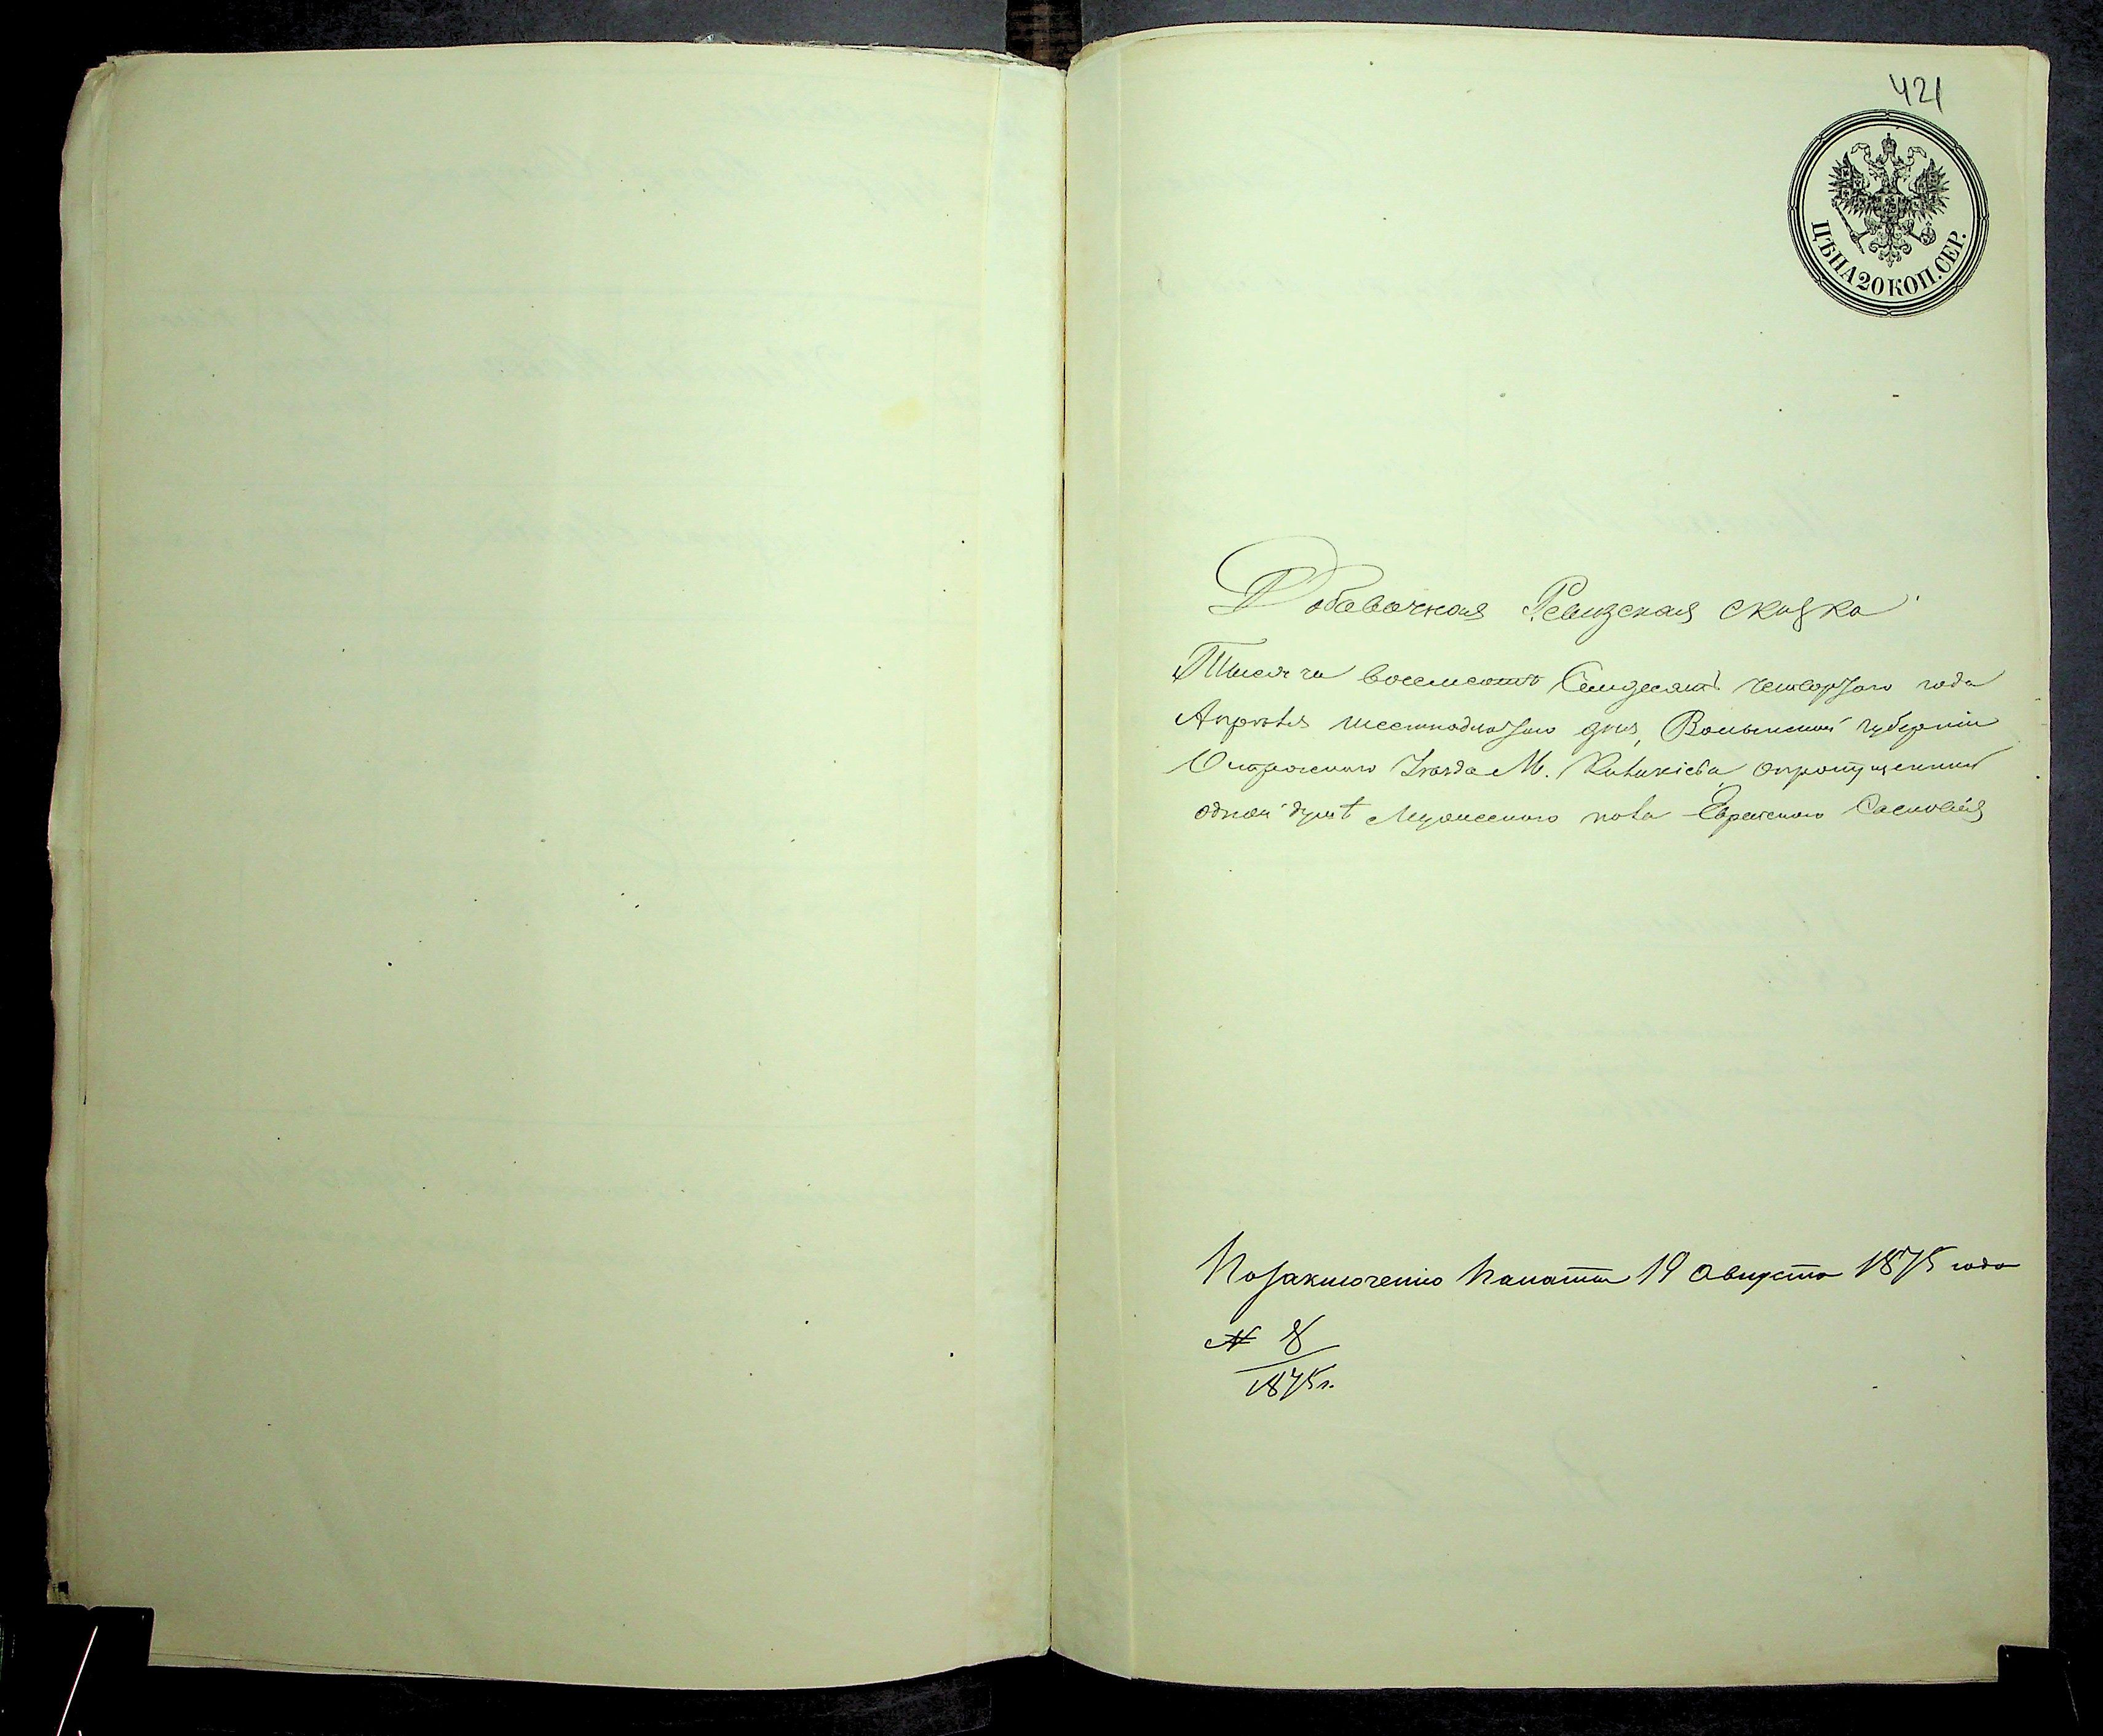 421
ЦѢНА 20 КОП. СЕР.
Добавочная Ревизская сказка
Тысяча восемсотъ Семдесятъ четвертаго года
Апрѣля шестнадцатаго дня, Волынской губерніи
Острожского Уѣзда М. Кильикіева опропущенной
одной душѣ Мужеского пола Еврейского Сасловія
По заключенію Палаты 19 Августа 1875 года
№ 8
1875 г.